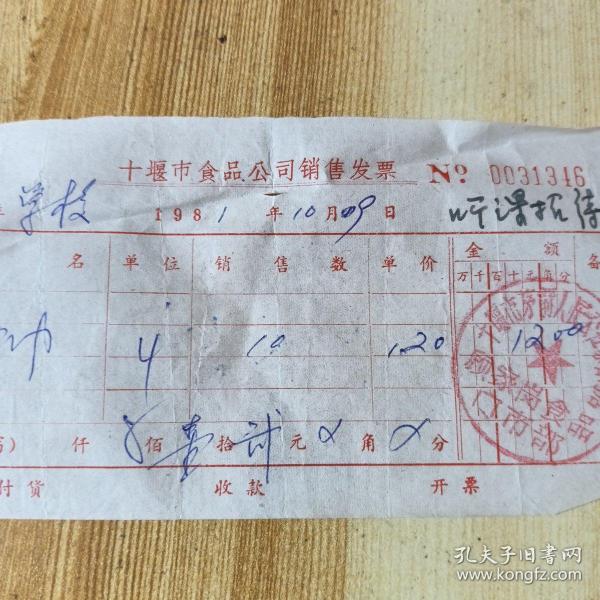 十堰市食品公司销售发票 Nº 0031346
学校 1981年10月09日 听课招待
名 单位 销售数 单价 金额 备
万千百十元角分
4 10 1.20 12.00
仟 佰 壹拾贰元 角 分
付货 收款 开票
孔夫子旧书网
www.kongfz.com